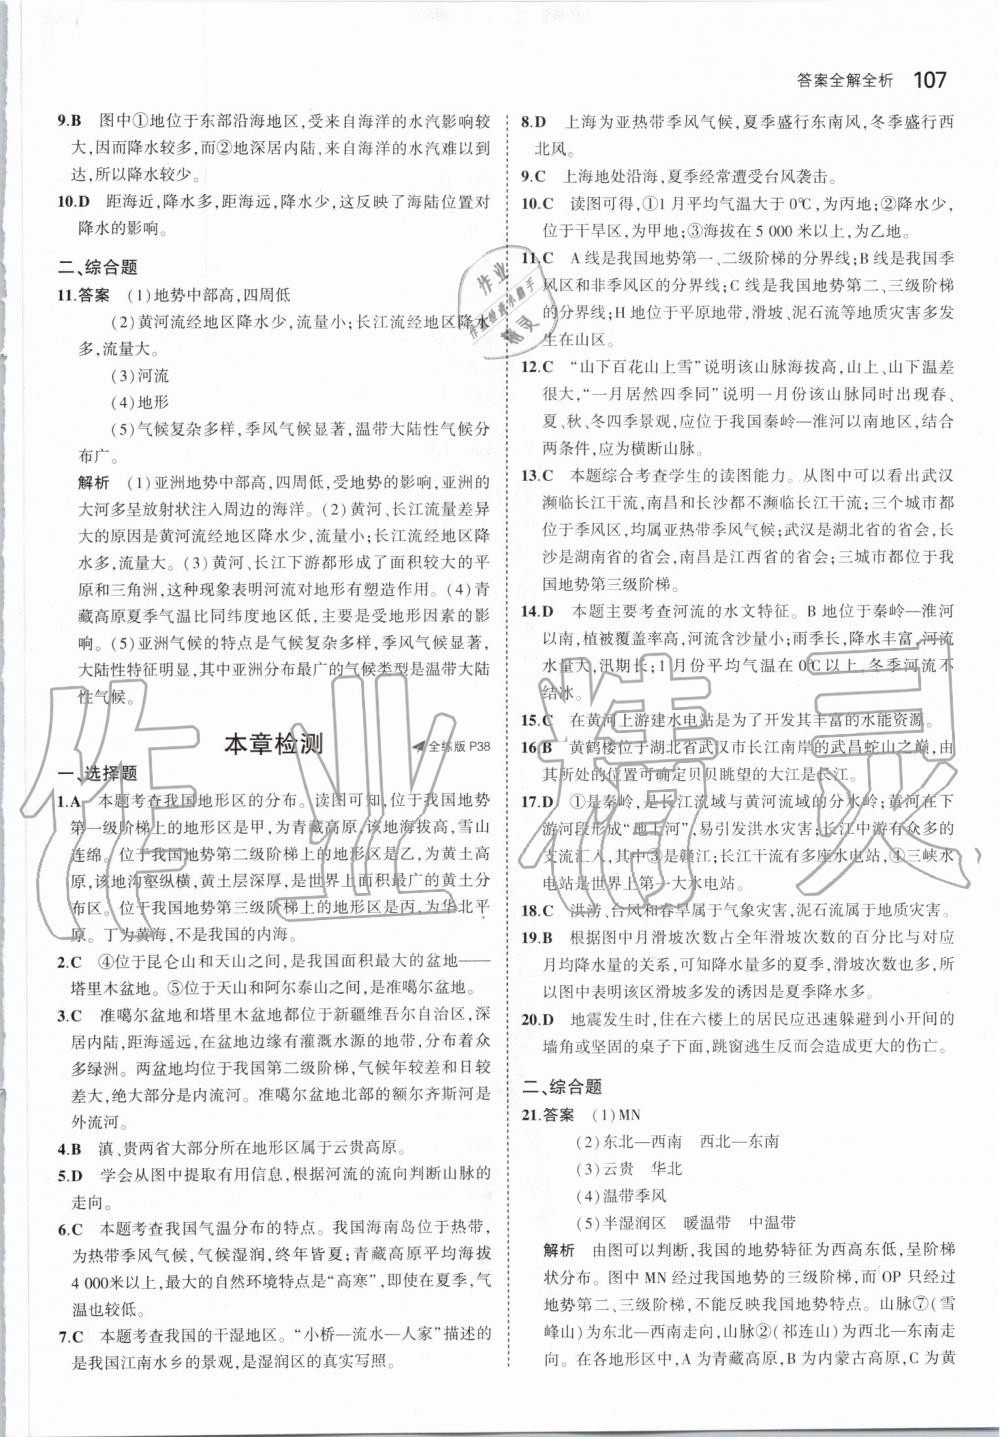 答案全解全析 107
9.B 图中①地位于东部沿海地区,受来自海洋的水汽影响较
大,因而降水较多,而②地深居内陆,来自海洋的水汽难以到
达,所以降水较少。
10.D 距海近,降水多,距海远,降水少,这反映了海陆位置对
降水的影响。
二、综合题
11.答案 (1)地势中部高,四周低
(2)黄河流经地区降水少,流量小;长江流经地区降水
多,流量大。
(3)河流
(4)地形
(5)气候复杂多样,季风气候显著,温带大陆性气候分
布广。
解析 (1)亚洲地势中部高,四周低,受地势的影响,亚洲的
大河多呈放射状注入周边的海洋。(2)黄河、长江流量差异
大的原因是黄河流经地区降水少,流量小;长江流经地区降
水多,流量大。(3)黄河、长江下游都形成了面积较大的平
原和三角洲,这种现象表明河流对地形有塑造作用。(4)青
藏高原夏季气温比同纬度地区低,主要是受地形因素的影
响。(5)亚洲气候的特点是气候复杂多样,季风气候显著,
大陆性特征明显,其中亚洲分布最广的气候类型是温带大陆
性气候。
本章检测 全练版 P38
一、选择题
1.A 本题考查我国地形区的分布。读图可知,位于我国地势
第一级阶梯上的地形区是甲,为青藏高原,该地海拔高,雪山
连绵。位于我国地势第二级阶梯上的地形区是乙,为黄土高
原,该地沟壑纵横,黄土层深厚,是世界上面积最广的黄土分
布区。位于我国地势第三级阶梯上的地形区是丙,为华北平
原。丁为黄海,不是我国的内海。
2.C ④位于昆仑山和天山之间,是我国面积最大的盆地——
塔里木盆地。⑤位于天山和阿尔泰山之间,是准噶尔盆地。
3.C 准噶尔盆地和塔里木盆地都位于新疆维吾尔自治区,深
居内陆,距海遥远,在盆地边缘有灌溉水源的地带,分布着众
多绿洲。两盆地均位于我国第二级阶梯,气候年较差和日较
差大,绝大部分是内流河。准噶尔盆地北部的额尔齐斯河是
外流河。
4.B 滇、贵两省大部分所在地形区属于云贵高原。
5.D 学会从图中提取有用信息,根据河流的流向判断山脉的
走向。
6.C 本题考查我国气温分布的特点。我国海南岛位于热带,
为热带季风气候,气候湿润,终年皆夏;青藏高原平均海拔
4 000米以上,最大的自然环境特点是“高寒”,即使在夏季,气
温也较低。
7.C 本题考查我国的干湿地区。“小桥—流水—人家”描述的
是我国江南水乡的景观,是湿润区的真实写照。
8.D 上海为亚热带季风气候,夏季盛行东南风,冬季盛行西
北风。
9.C 上海地处沿海,夏季经常遭受台风袭击。
10.C 读图可得,①1月平均气温大于0℃,为丙地;②降水少,
位于干旱区,为甲地;③海拔在5 000米以上,为乙地。
11.C A线是我国地势第一、二级阶梯的分界线;B线是我国季
风区和非季风区的分界线;C线是我国地势第二、三级阶梯
的分界线;H地位于平原地带,滑坡、泥石流等地质灾害多发
生在山区。
12.C “山下百花山上雪”说明该山脉海拔高,山上、山下温差
很大,“一月居然四季同”说明一月份该山脉同时出现春、
夏、秋、冬四季景观,应位于我国秦岭—淮河以南地区,结合
两条件,应为横断山脉。
13.C 本题综合考查学生的读图能力。从图中可以看出武汉
濒临长江干流,南昌和长沙都不濒临长江干流;三个城市都
位于季风区,均属亚热带季风气候;武汉是湖北省的省会,长
沙是湖南省的省会,南昌是江西省的省会;三城市都位于我
国地势第三级阶梯。
14.D 本题主要考查河流的水文特征。B地位于秦岭—淮河
以南,植被覆盖率高,河流含沙量小;雨季长,降水丰富,河流
水量大,汛期长;1月份平均气温在0℃以上,冬季河流不
结冰。
15.C 在黄河上游建水电站是为了开发其丰富的水能资源。
16.B 黄鹤楼位于湖北省武汉市长江南岸的武昌蛇山之巅,由
此所处的位置可确定贝贝眺望的大江是长江。
17.D ①是秦岭,是长江流域与黄河流域的分水岭;黄河在下
游河段形成“地上河”,易引发洪水灾害;长江中游有众多的
支流汇入,其中③是赣江;长江干流有多座水电站,④三峡水
电站是世界上第一大水电站。
18.C 洪涝、台风和春旱属于气象灾害,泥石流属于地质灾害。
19.B 根据图中月滑坡次数占全年滑坡次数的百分比与对应
月均降水量的关系,可知降水量多的夏季,滑坡次数也多,
所以图中表明该区滑坡多发的诱因是夏季降水多。
20.D 地震发生时,住在六楼上的居民应迅速躲避到小开间的
墙角或坚固的桌子下面,跳窗逃生可能会造成更大的伤亡。
二、综合题
21.答案 (1)MN
(2)东北—西南 西北—东南
(3)云贵 华北
(4)温带季风
(5)半湿润区 暖温带 中温带
解析 由图可以判断,我国的地势特征为西高东低,呈阶梯
状分布。图中MN经过我国地势的三级阶梯,而OP只经过
地势第二、三级阶梯,不能反映我国地势特点。山脉⑦(雪
峰山)为东北—西南走向,山脉②(祁连山)为西北—东南走
向。在各地形区中,A为青藏高原,B为内蒙古高原,C为黄